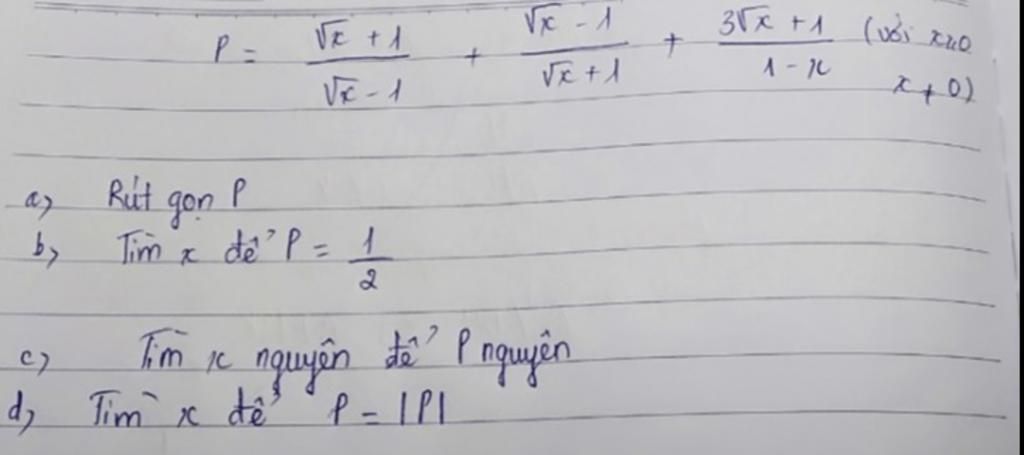 P = \frac{\sqrt{x} + 1}{\sqrt{x} - 1} + \frac{\sqrt{x} - 1}{\sqrt{x} + 1} + \frac{3\sqrt{x} + 1}{1 - x} (với x≥0
x ≠ 0)
a) Rút gọn P
b) Tìm x để P = \frac{1}{2}
c) Tìm x nguyên để P nguyên
d) Tìm x để P = |P|